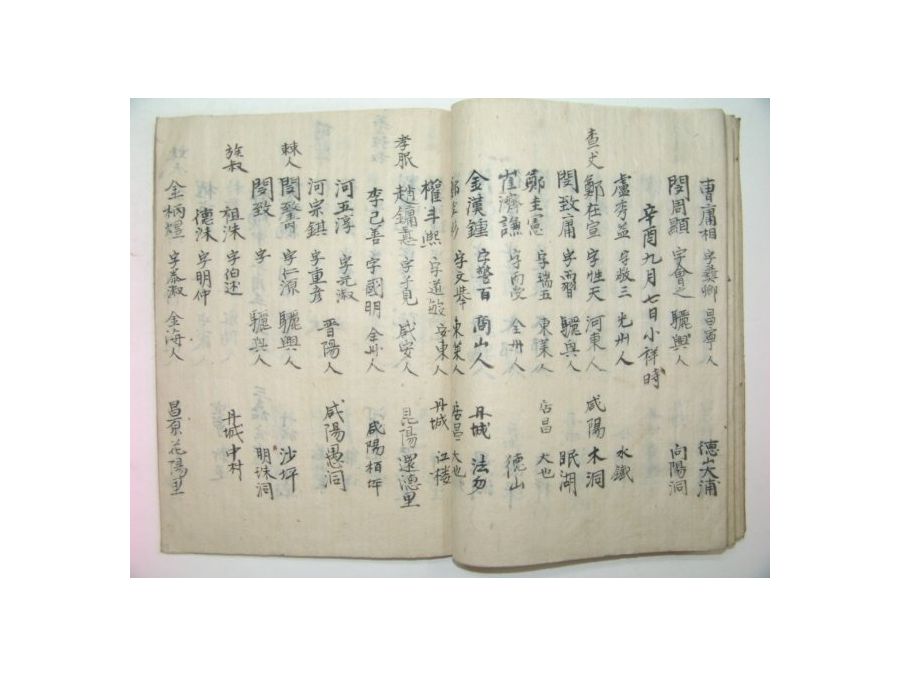 曺庸相 字彝卿 昌寧人 德山大浦
閔周顯 字會之 驪興人 向陽洞
辛酉九月七日小祥時
盧秀益 字敬三 光州人 水鐵
査丈 鄭在宣 字性天 河東人 咸陽木洞
閔致庸 字而習 驪興人 眠湖
鄭圭憲 字瑞五 東萊人 居昌大也
崔濟謙 字而受 全州人 德山
金漢鍾 字警百 商山人 丹城法勿
字文擧 東萊人 居昌大也
權斗熙 字道敏 安東人 丹城江樓
孝服 趙鏞惪 字子見 咸安人 見陽還德里
李己善 字國明 全州人 咸陽栢坪
河五淳 字元淑 晋陽人 咸陽愚洞
河宗鎮 字重彦
棘人 閔 字仁源 驪興人 沙坪
閔致 字 驪興人 明洙洞
族叔 祖洙 字伯述 丹城中村
德洙 字明仲
金柄煌 字泰淑 金海人 昌原花陽里